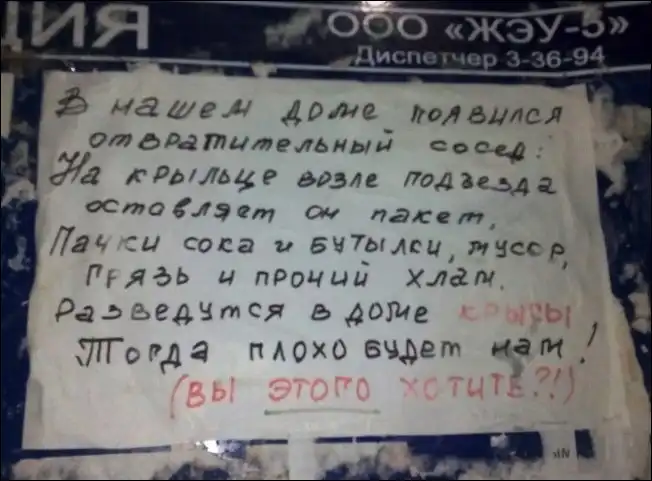 ЦИЯ
ООО «ЖЭУ-5»
Диспетчер 3-36-94
В нашем доме появился
отвратительный сосед:
На крыльце возле подъезда
оставляет он пакет,
Пачки сока и бутылки, мусор,
грязь и прочий хлам.
Разведутся в доме крысы
Тогда плохо будет нам!
(вы этого хотите?!)